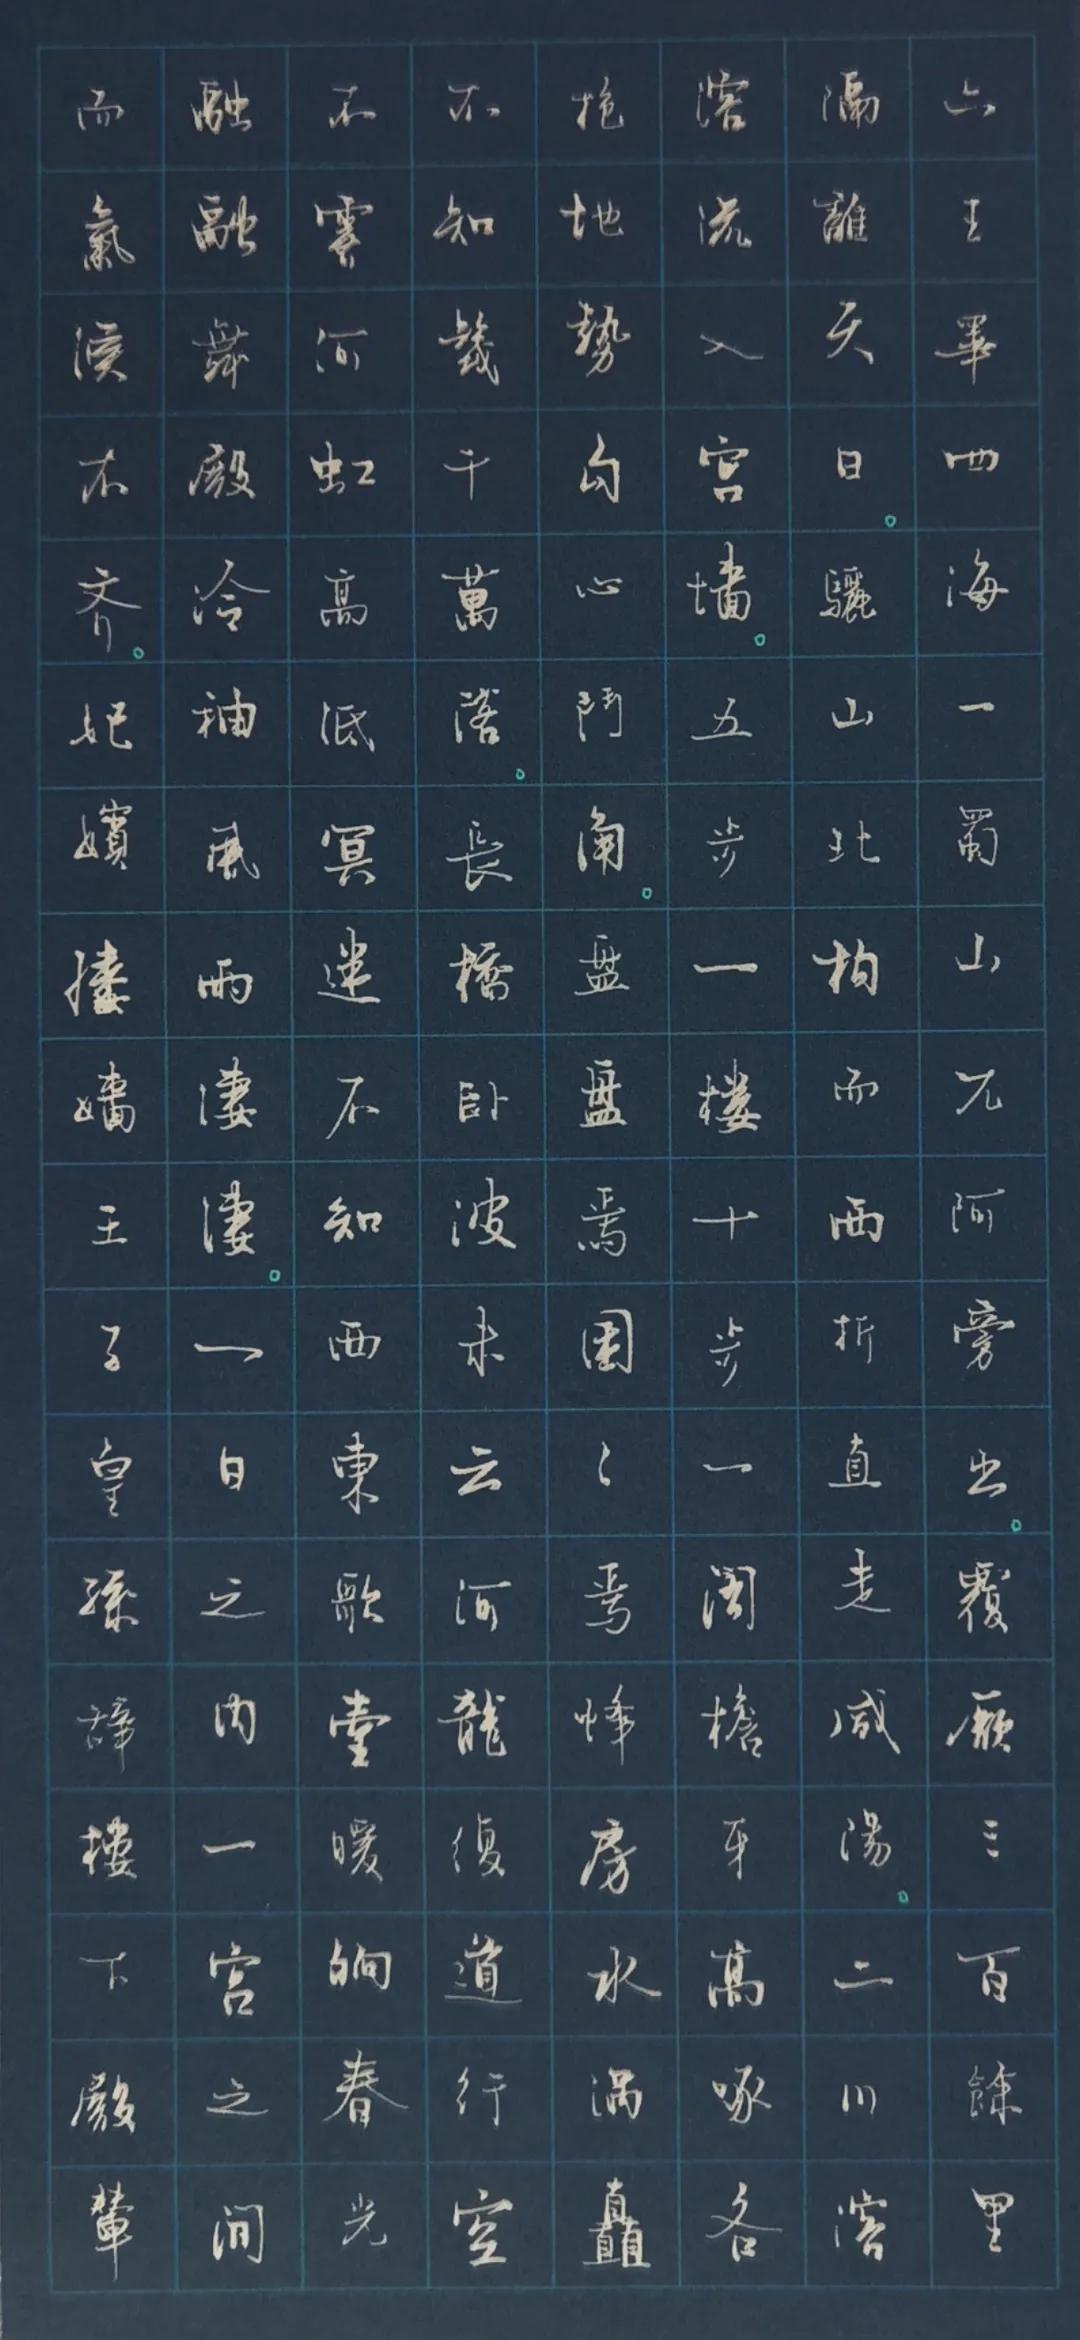 六王畢四海一蜀山兀阿旁出。覆壓三百餘里
隔離天日。驪山北构而西折直走咸陽。二川溶
溶流入宫墙。五步一楼十步一阁檐牙高啄各
抱地勢勾心鬥角。盘盘焉囷々焉蜂房水涡矗
不知幾千萬落。長橋卧波未云何龍復道行空
不霽何虹高低冥迷不知西東歌臺暖响春光
融融舞殿冷袖風雨淒淒。一日之内一宫之間
而氣候不齊。妃嬪媵嬙王子皇孫辞楼下殿輦